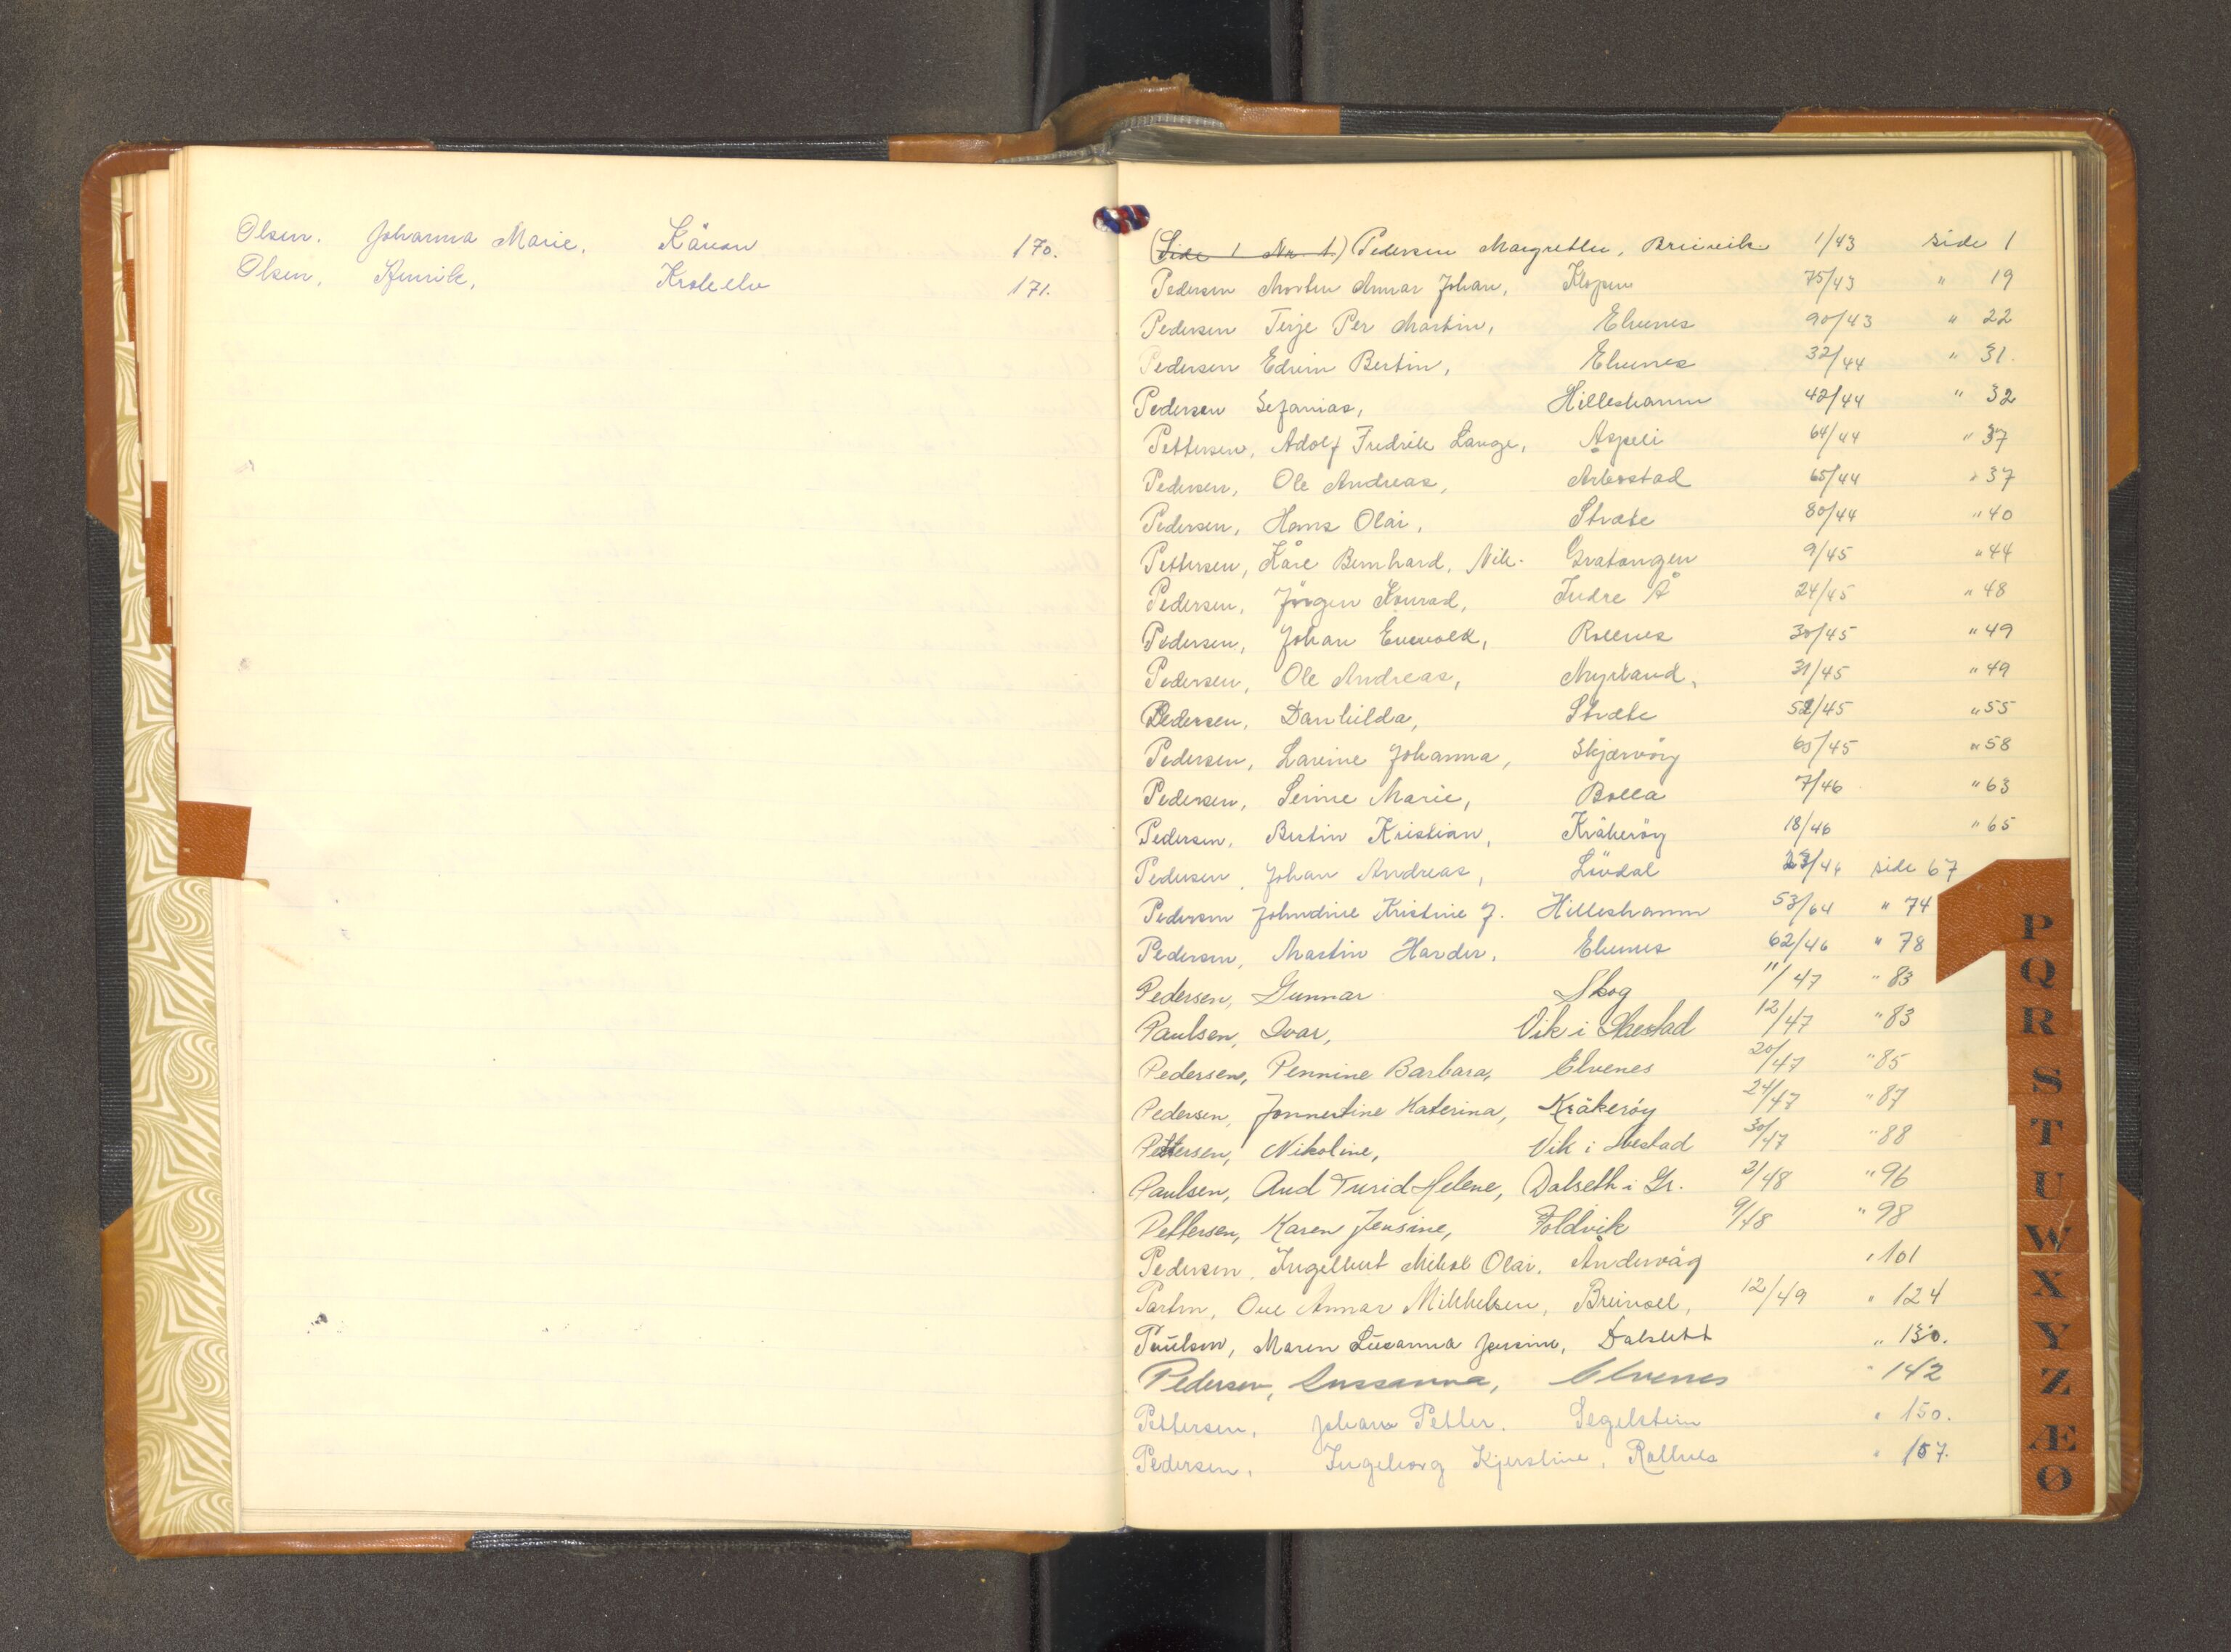 Olsen. Johanna Marie, Kånon 170.
Olsen, Henrik, Krokelv 171.
(Side 1 Nr. 1.) Pedersen Margrethe, Breivik 1/43 side 1
Pedersen Morten Annar Johan, Klopen 75/43 " 19
Pedersen Terje Per Martin, Elvenes 90/43 " 22
Pedersen Edvin Bertin, Elvenes 32/44 " 31.
Pedersen Sefanias, Hilleshamn 42/44 " 32
Pettersen, Adolf Fredrik Lange, Aspeli 64/44 " 37
Pedersen, Ole Andreas, Arbostad 65/44 " 37
Pedersen, Hans Olai, Stræte 80/44 " 40
Pettersen, Kåre Bernhard, Nik. Gratangen 9/45 " 44
Pedersen, Jörgen Konrad, Indre Å 24/45 " 48
Pedersen, Johan Enevold, Rollnes 30/45 " 49
Pedersen, Ole Andreas, Myrland, 31/45 " 49
Pedersen, Danhilda, Stræte 52/45 " 55
Pedersen, Lavine Johanna, Skjærvöy 65/45 " 58
Pedersen, Serine Marie, Bolla 7/46 " 63
Pedersen, Bertin Kristian, Kråkeröy 18/46 " 65
Pedersen, Johan Andreas, Lövdal 23/46 side 67
Pedersen Johndine Kristine J. Hilleshamn 53/64 " 74
Pedersen, Martin Harder, Elvenes 62/46 " 78
Pedersen, Gunnar Skog 11/47 " 83
Paulsen, Ivar, Vik i Ibestad 12/47 " 83
Pedersen, Pennine Barbara, Elvenes 20/47 " 85
Pedersen, Jonnertine Katerina, Kråkeröy 24/47 " 87
Pettersen, Nikoline, Vik i Ibestad 30/47 " 88
Paulsen, Aud Turid Helene, Dalseth i Gr. 2/48 " 96
Pettersen, Karen Jensine, Foldvik 9/48 " 98
Pedersen, Ingelbert Mikal Olai. Åndervåg " 101
Parten, Ove Annar Mikkelsen, Breivoll, 12/49 " 124
Paulsen, Maren Susanna Jensine, Dalslett " 130.
Pedersen, Sussanna, Elvenes " 142
Pettersen, Johan Petter. Segelstein " 150.
Pedersen, Ingeborg Kjerstine, Rollnes " 157.
P
Q
R
S
T
U
W
X
Y
Z
Æ
Ø